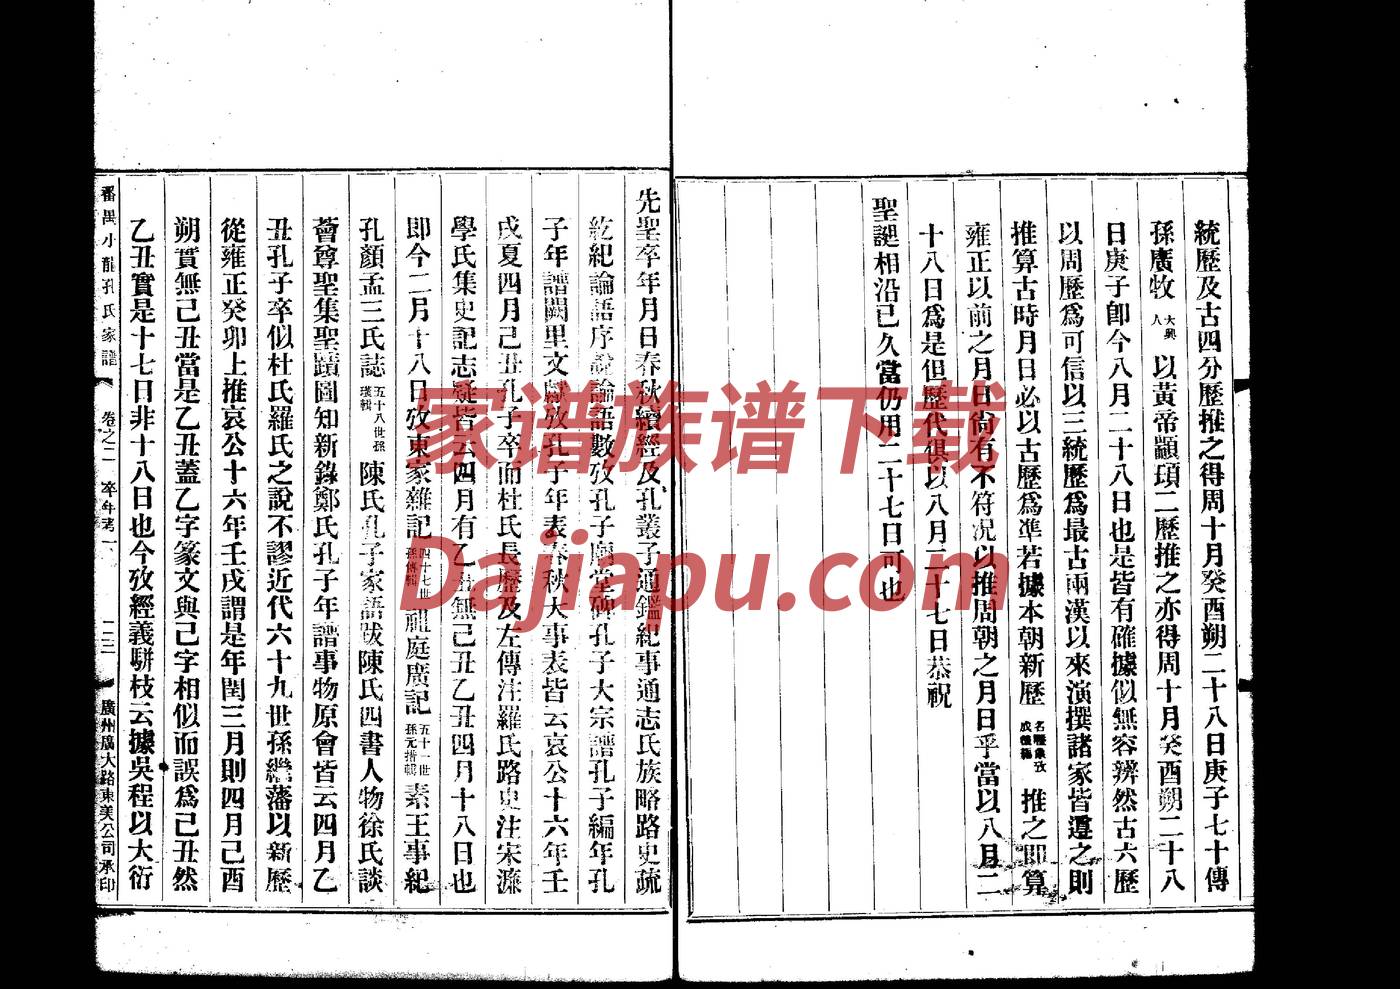 統歷及古四分歷推之得周十月癸酉朔二十八日庚子七十傳
孫廣牧大興人以黃帝顓頊二歷推之亦得周十月癸酉朔二十八
日庚子卽今八月二十八日也是皆有確據似無容辨然古六歷
以周歷爲可信以三統歷爲最古兩漢以來演撰諸家皆遵之則
推算古時月日必以古歷爲準若據本朝新歷名曆象攷成後編推之即算
雍正以前之月日尙有不符况以推周朝之月日乎當以八月二
十八日爲是但歷代俱以八月二十七日恭祝
聖誕相沿已久當仍用二十七日可也
先聖卒年月日春秋續經及孔叢子通鑑紀事通志氏族略路史疏
紇紀論語序說論語數攷孔子廟堂碑孔子大宗譜孔子編年孔
子年譜闕里文獻攷孔子年表春秋大事表皆云哀公十六年壬
戌夏四月己丑孔子卒而杜氏長歷及左傳注羅氏路史注宋濂
學氏集史記志疑皆云四月有乙丑無己丑乙丑四月十八日也
即今二月十八日攷東家雜記四十七世孫傳輯祖庭廣記五十一世孫元措輯素王事紀
孔顏孟三氏誌五十八世孫璞輯陳氏孔子家語跋陳氏四書人物徐氏談
薈尊聖集聖蹟圖知新錄鄭氏孔子年譜事物原會皆云四月乙
丑孔子卒似杜氏羅氏之說不謬近代六十九世孫繼藩以新歷
從雍正癸卯上推哀公十六年壬戌謂是年閏三月則四月己酉
朔實無己丑當是乙丑蓋乙字篆文與己字相似而誤爲己丑然
乙丑實是十七日非十八日也今攷經義駢枝云據吳程以大衍
番禺小龍孔氏家譜 卷之二 卒年考一 二三 廣州廣大路東美公司承印
家谱族谱下载
Dajiapu.com